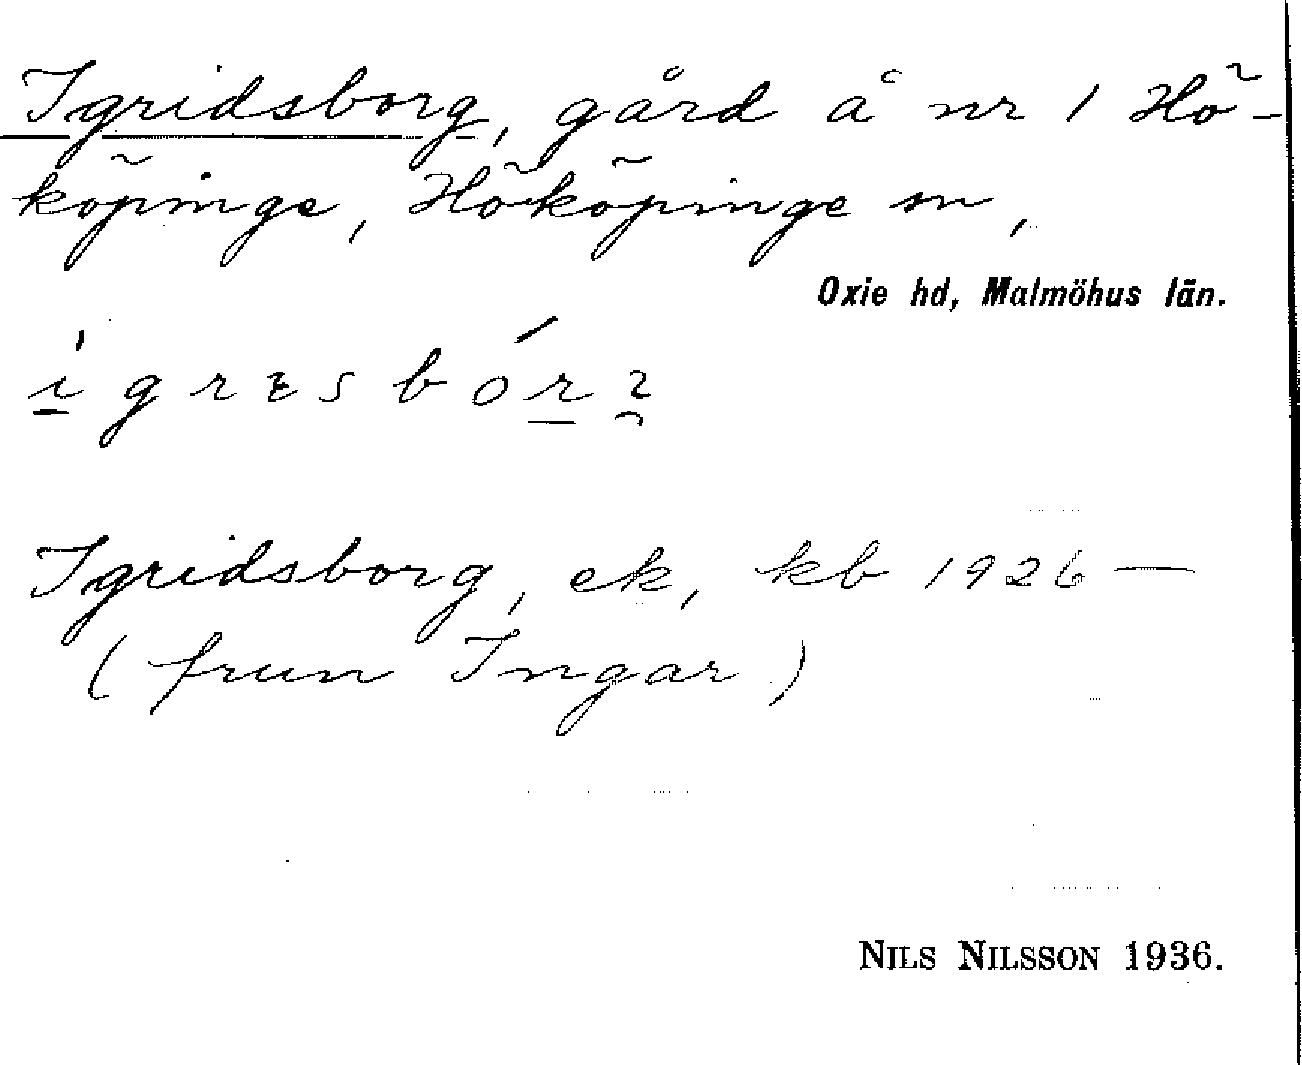 Igridsborg, gård å nr 1 Hö-
köpinge, Hököpinge sn,
Oxie hd, Malmöhus län.
Igridsborg, ek, kb 1926 —
(frun Ingar)
NILS NILSSON 1936.